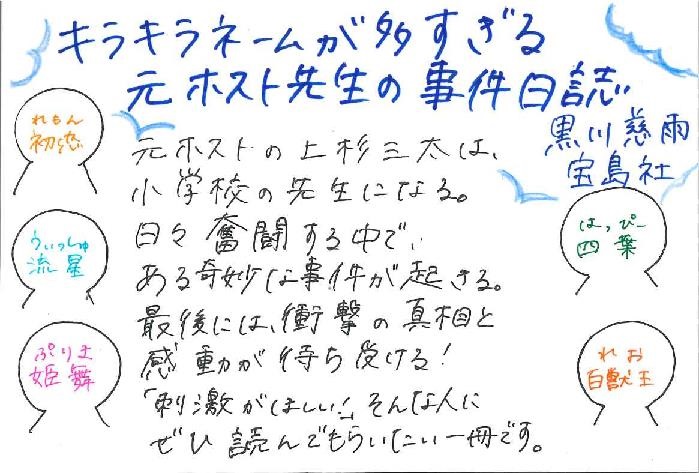 キラキラネームが多すぎる
元ホスト先生の事件日誌
黒川慈雨
宝島社
れもん
初恋
うぃっしゅ
流星
ぷりま
姫舞
はっぴー
四葉
れお
百獣王
元ホストの上杉三太は、
小学校の先生になる。
日々奮闘する中で、
ある奇妙な事件が起きる。
最後には、衝撃の真相と
感動が待ち受ける!
「刺激がほしい!」そんな人に
ぜひ読んでもらいたい一冊です。